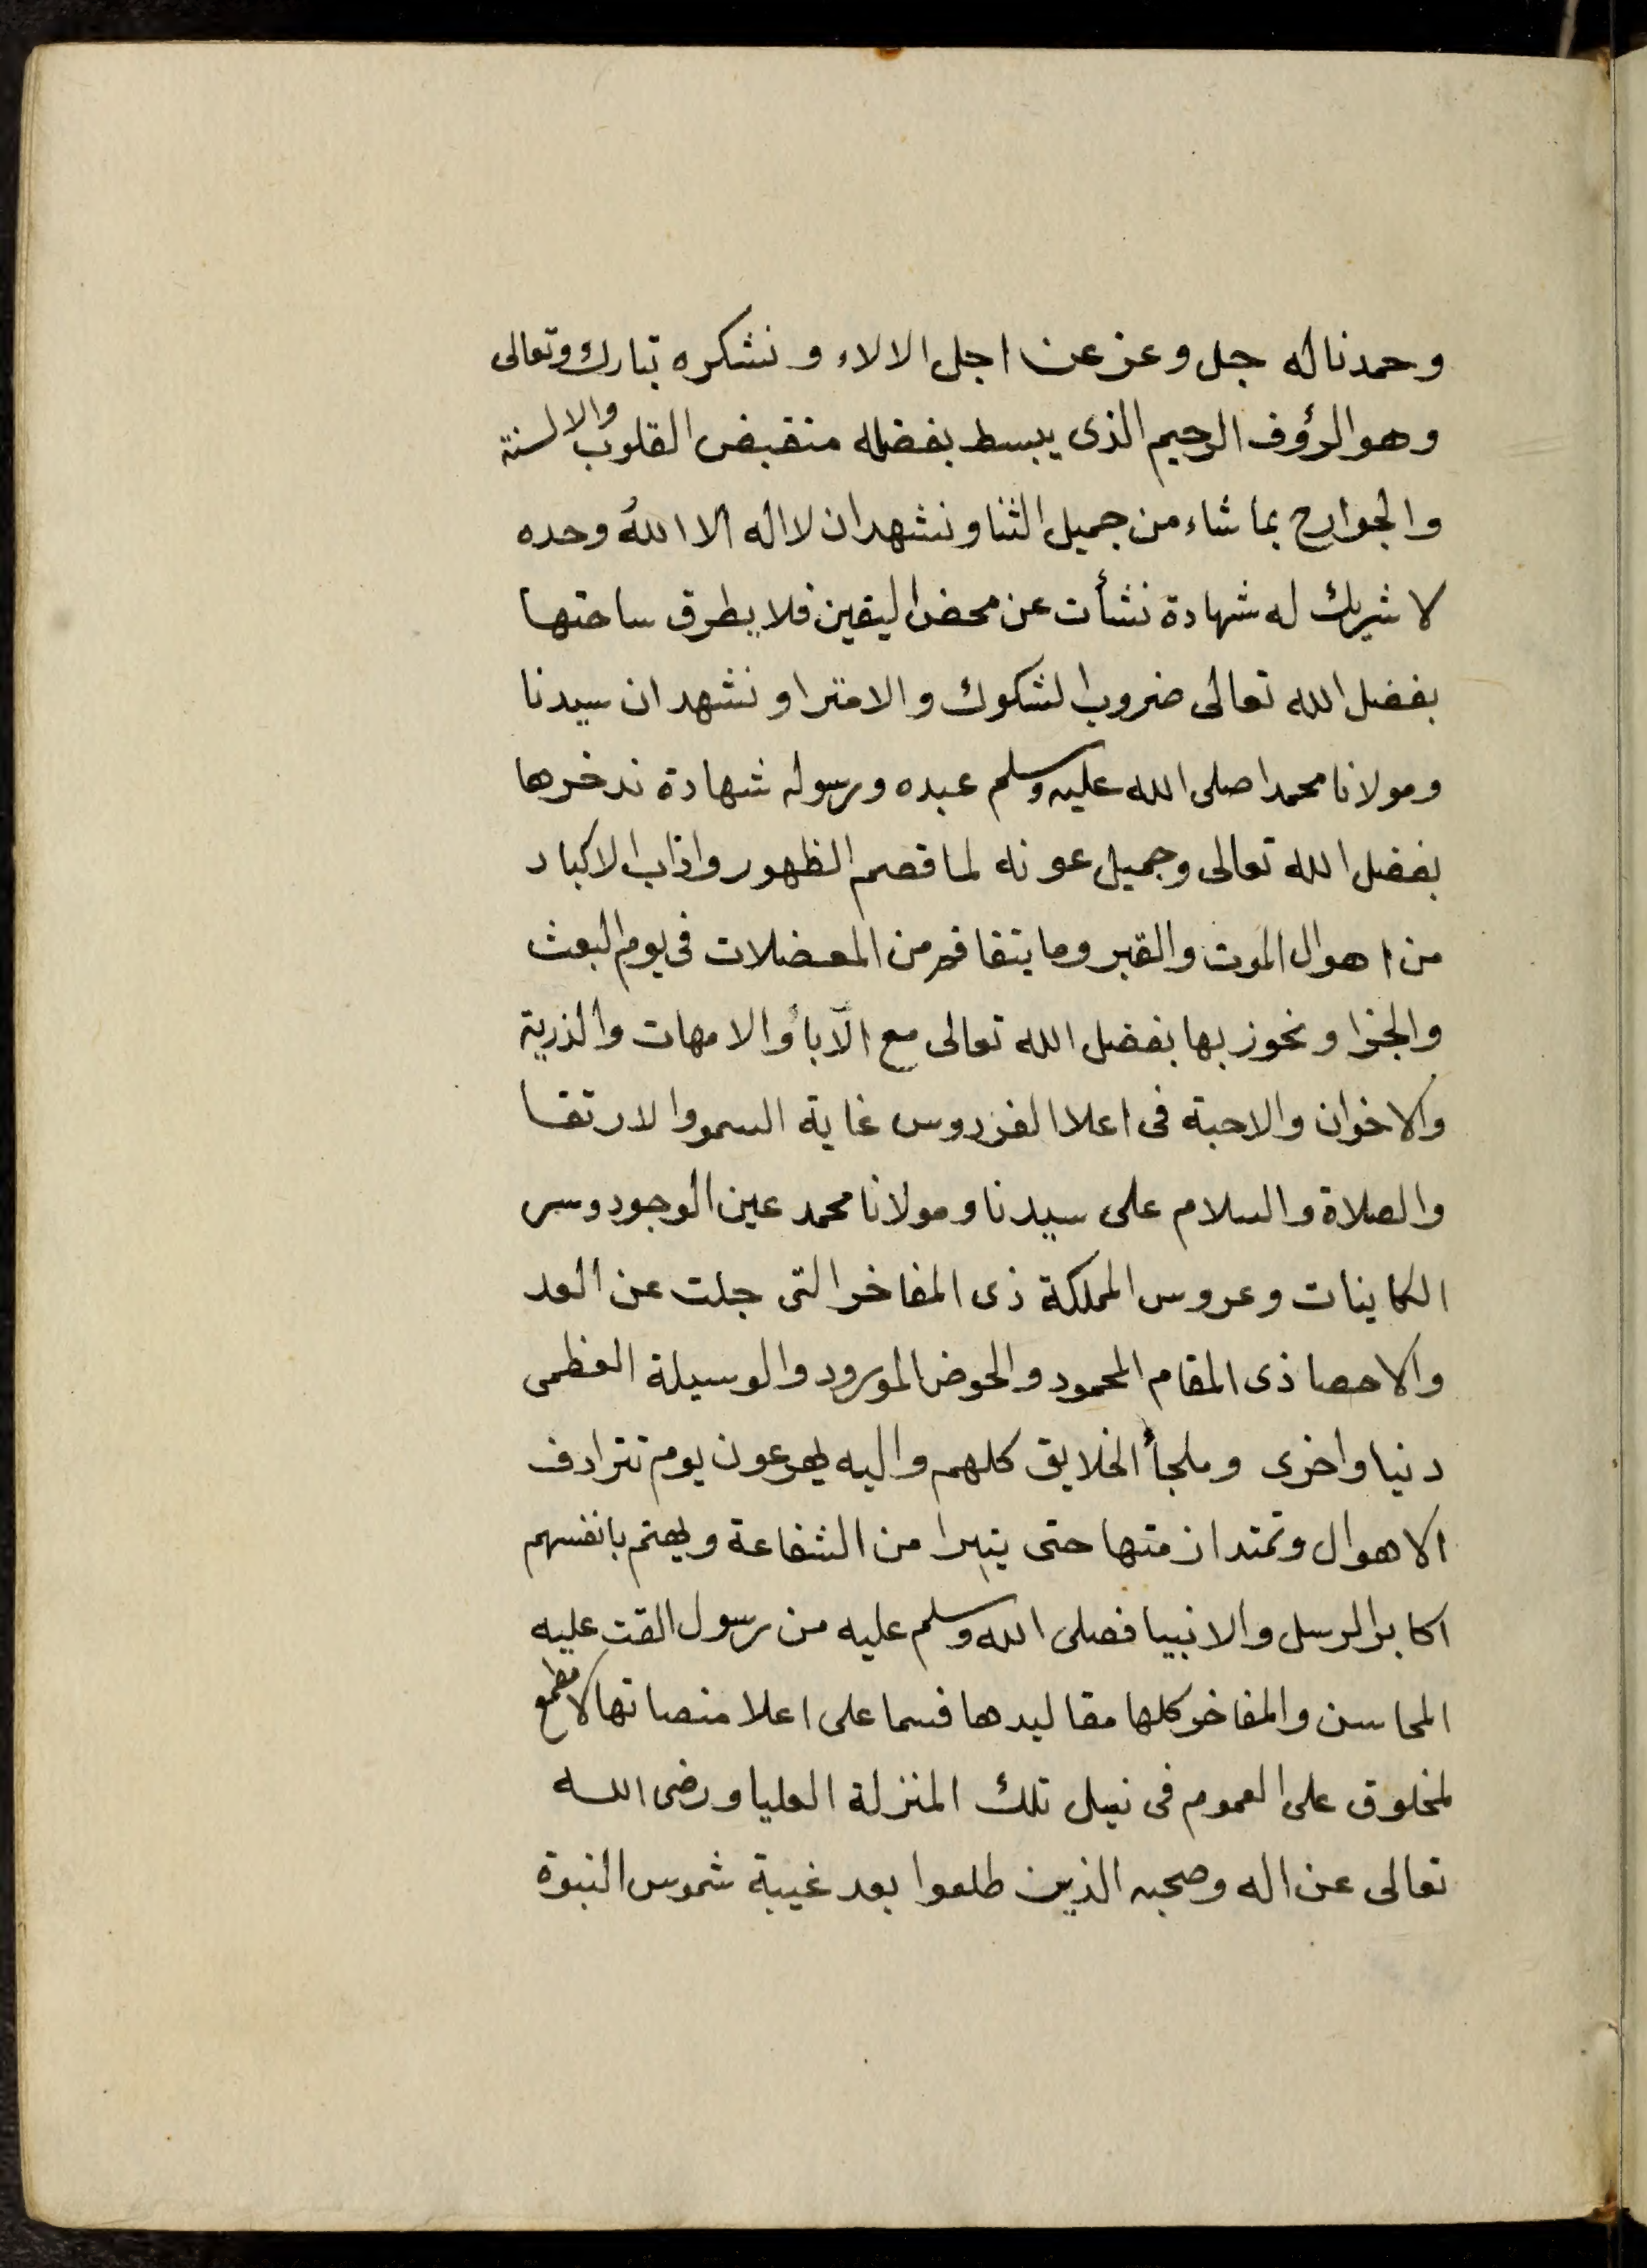 وحمدناله جل وعز عن اجل الالاء ونشكره تبارك وتعالى
وهو الرؤف الرحيم الذى يبسط بفضله منقبض القلوب والالسنة
والجوارح بما شاء من جميل الثنا ونشهد ان لا اله الا الله وحده
لا شريك له شهادة نشأت عن محض اليقين فلا يطرق ساحتها
بفضل الله تعالى ضروب الشكوك والامترا ونشهد ان سيدنا
ومولانا محمدا صلى الله عليه وسلم عبده ورسوله شهادة ندخرها
بفضل الله تعالى وجميل عونه لما قصم الظهور واذاب الاكباد
من اهوال الموت والقبر وما يتفاقم من المعضلات فى يوم البعث
والجزا ونحوز بها بفضل الله تعالى مع الآباء والامهات والذرية
والاخوان والاحبة فى اعلا الفردوس غاية السمو والارتقا
والصلاة والسلام على سيدنا ومولانا محمد عين الوجود وسر
الكاينات وعروس المملكة ذى المفاخر التى جلت عن العد
والاحصا ذى المقام المحمود والحوض المورود والوسيلة العظمى
دنيا واخرى وملجأ الخلايق كلهم واليه يهرعون يوم تترادف
الاهوال وتمتد ازمتها حتى يتبرا من الشفاعة ويهتم بانفسهم
اكابر الرسل والانبيا فصلى الله وسلم عليه من رسول القت عليه
المحاسن والمفاخر كلها مقاليدها فسما على اعلا منصاتها لا مطمع
لمخلوق على العموم فى نيل تلك المنزلة العليا ورضى الله
تعالى عن اله وصحبه الذين طلعوا بعد غيبة شموس النبوة